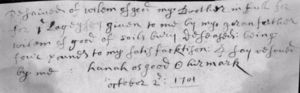 Received of willem osgood my Brother in full
for Legacyes given to me by my granfather
willem osgood of Salisbury Deceased being
four pounds to my satisfacktion I say received
by me hanah osgood O her mark
october 2: 1701